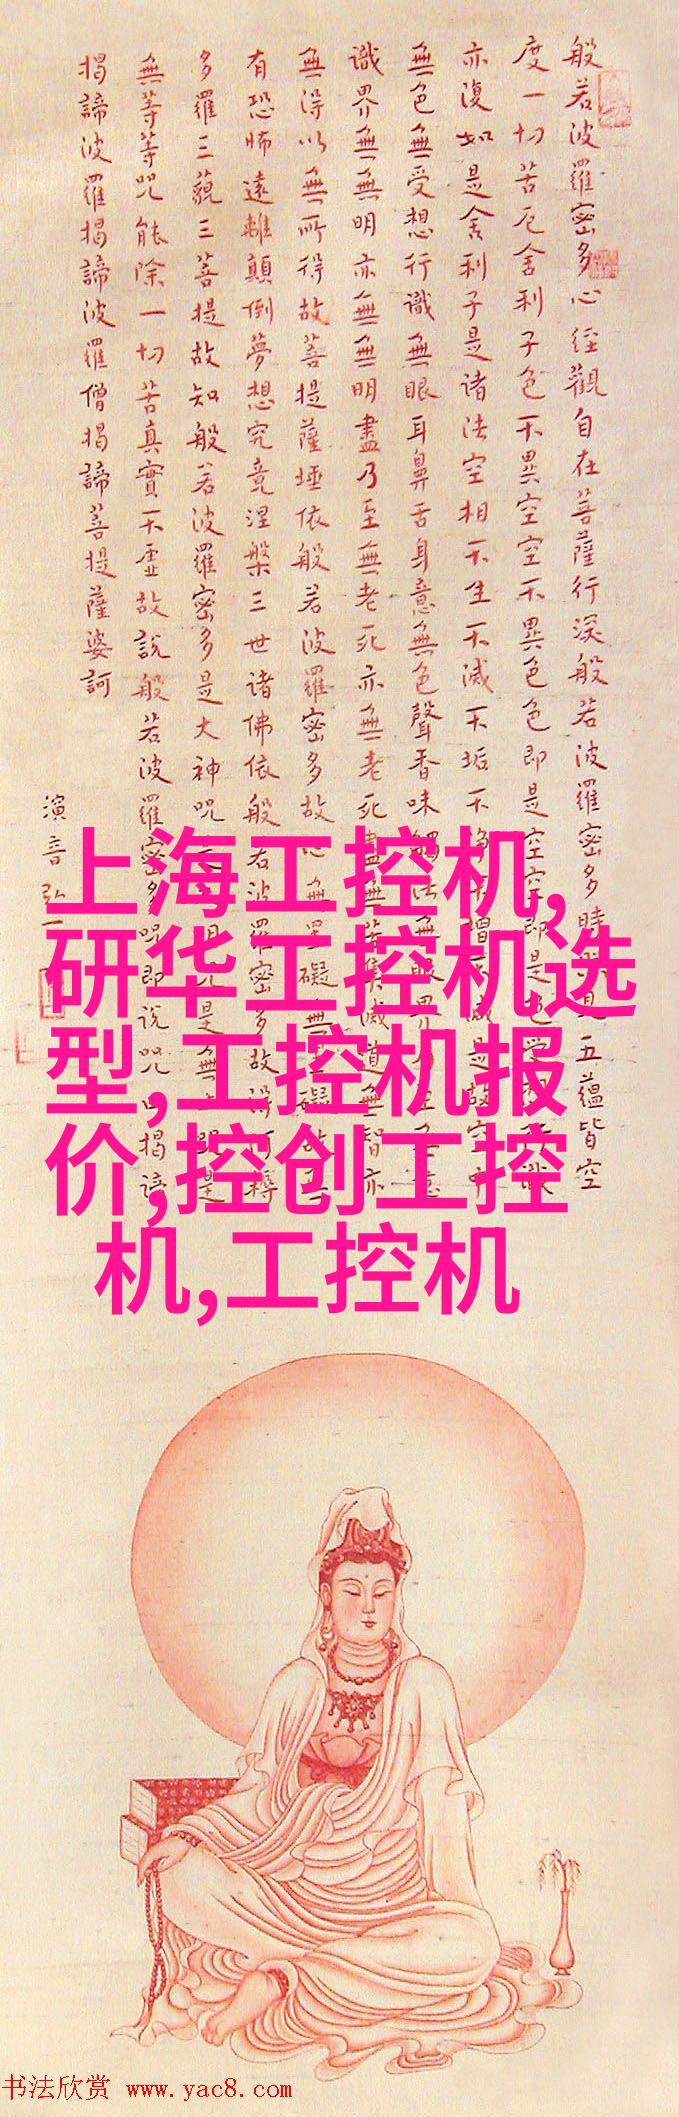 般若波羅密多心经觀自在菩薩行深般若波羅密多時照見五蘊皆空
度一切苦厄舍利子色不異空空不異色色即是空空即是色受想行識
亦復如是舍利子是诸法空相不生不滅不垢不净不增不減是故空中
無色無受想行識無眼耳鼻舌身意無色聲香味觸法無眼界乃至無意
識界無無明亦無無明盡乃至無老死亦無老死盡無苦集滅道無智亦
無得以無所得故菩提薩埵依般若波羅密多故心無罣礙無罣礙故無
有恐怖遠離顛倒夢想究竟涅槃三世诸佛依般若波羅密多故得阿耨
多羅三藐三菩提故知般若波羅密多是大神咒是大明咒是無上咒是
無等等咒能除一切苦真實不虚故説般若波羅密多咒即说咒曰揭諦
揭諦波羅揭諦波羅僧揭諦菩提薩婆訶
演音弘一
上海工控机,
研华工控机选
型,工控机报
价,控创工控
机,工控机
书法欣赏 www.yac8.com